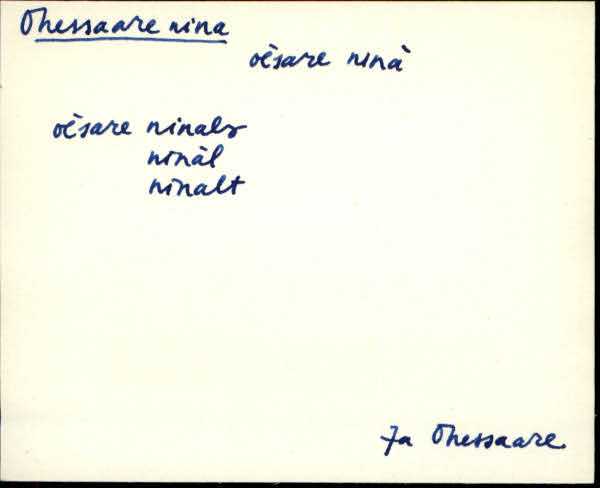 Ohessaare nina
oèsare ninà
oèsare ninalʒ
ninàl
ninalt
Ja Ohessaare